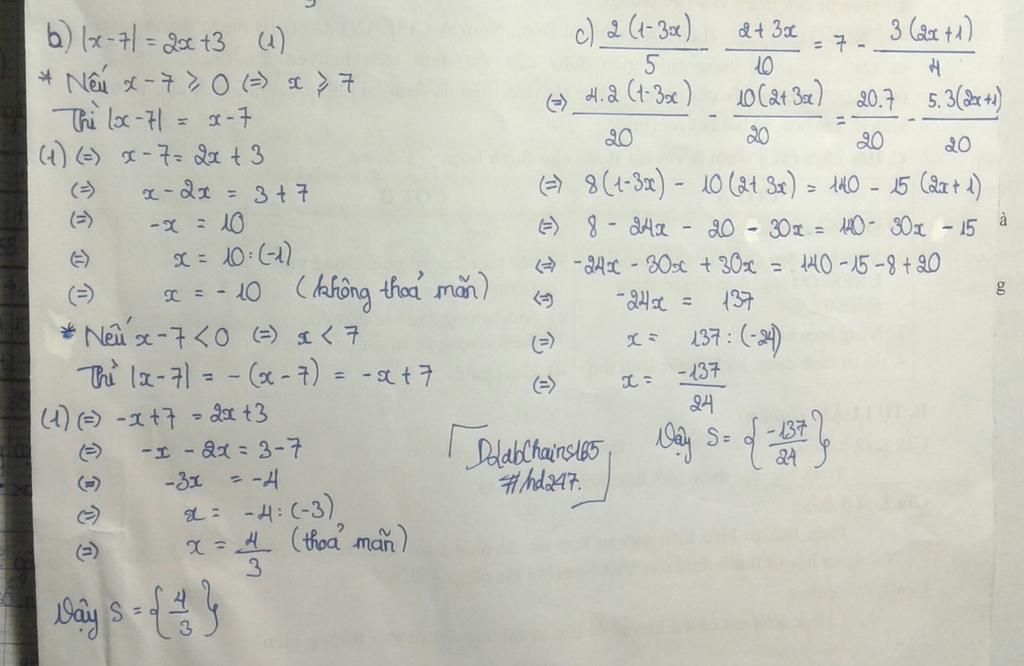 b) |x-7| = 2x+3 (1)
* Nếu x-7 ⩾ 0 (=) x ⩾ 7
Thì |x-7| = x-7
(1) (=) x-7 = 2x+3
(=) x-2x = 3+7
(=) -x = 10
(=) x = 10:(-1)
(=) x = -10 (không thoả mãn)
* Nếu x-7 < 0 (=) x < 7
Thì |x-7| = -(x-7) = -x+7
(1) (=) -x+7 = 2x+3
(=) -x - 2x = 3-7
(=) -3x = -4
(=) x = -4:(-3)
(=) x = 4/3 (thoả mãn)
Vậy S = {4/3}
c) 2(1-3x)/5 - 2+3x/10 = 7 - 3(2x+1)/4
(=) 4.2(1-3x)/20 - 10(2+3x)/20 = 20.7/20 - 5.3(2x+1)/20
(=) 8(1-3x) - 10(2+3x) = 140 - 15(2x+1)
(=) 8 - 24x - 20 - 30x = 140 - 30x - 15
(=) -24x - 30x + 30x = 140-15-8+20
(=) -24x = 137
(=) x = 137:(-24)
(=) x = -137/24
Vậy S = {-137/24}
#hd247
à
g